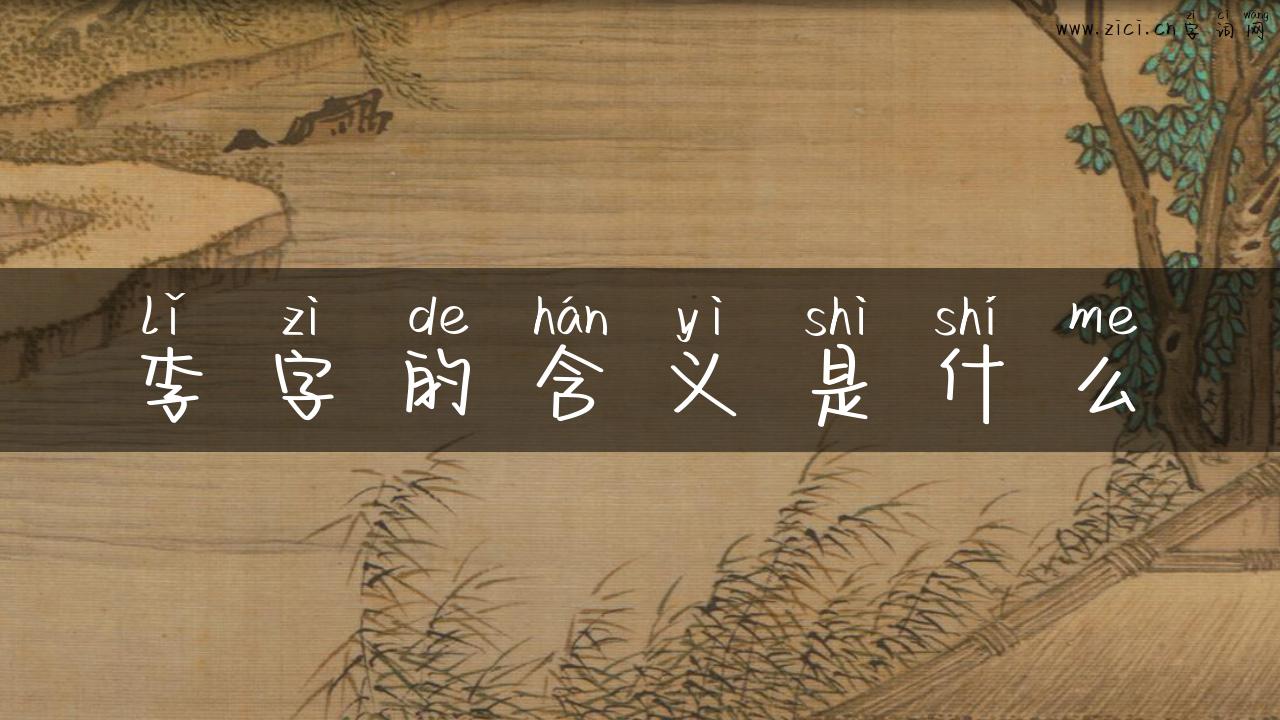 zì cí wǎng
www.zici.cn字词网
lǐ zì de hán yì shì shí me
李字的含义是什么